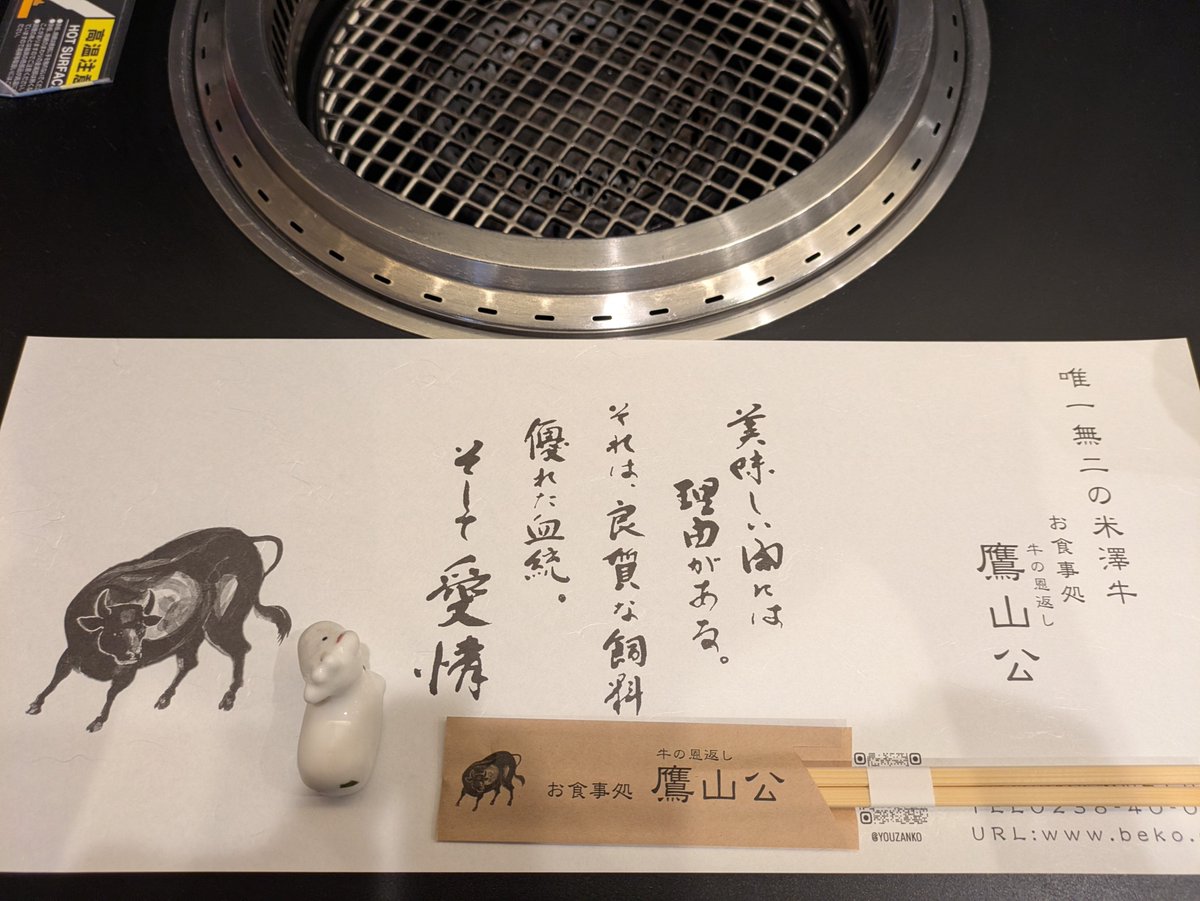 高温注意
HOT SURFAC
唯一無二の米澤牛
お食事処
牛の恩返し
鷹山公
美味しい肉には
理由がある。
それは、良質な飼料
優れた血統。
そして愛情
牛の恩返し
お食事処 鷹山公
@YOUZANKO
TEL0238-40-0
URL:www.beko.